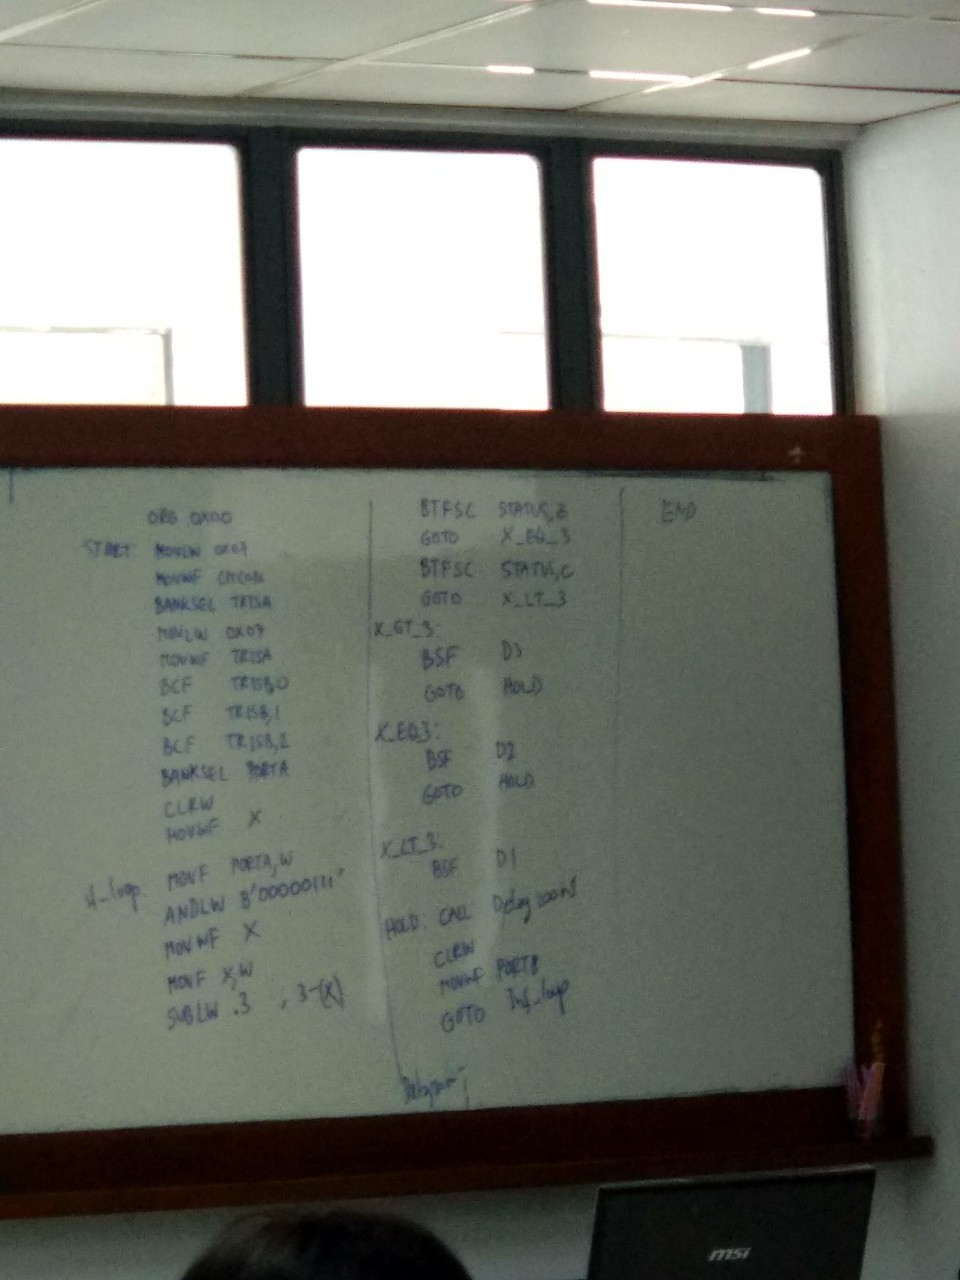 ORG 0X00
START: MOVLW 0X07
MOVWF CMCON
BANKSEL TRISA
MOVLW 0X07
MOVWF TRISA
BCF TRISB,0
BCF TRISB,1
BCF TRISB,2
BANKSEL PORTA
CLRW
MOVWF X
MOVF PORTA,W
ANDLW B'00000111'
MOVWF X
MOVF X,W
SUBLW .3 ; 3-(X)
BTFSC STATUS,Z
GOTO X_EQ_3
BTFSC STATUS,C
GOTO X_LT_3
X_GT_3:
BSF D3
GOTO HOLD
X_EQ3:
BSF D2
GOTO HOLD
X_LT_3:
BSF D1
HOLD: CALL
CLRW
MOVWF PORTB
GOTO Inf_loop
END
msi